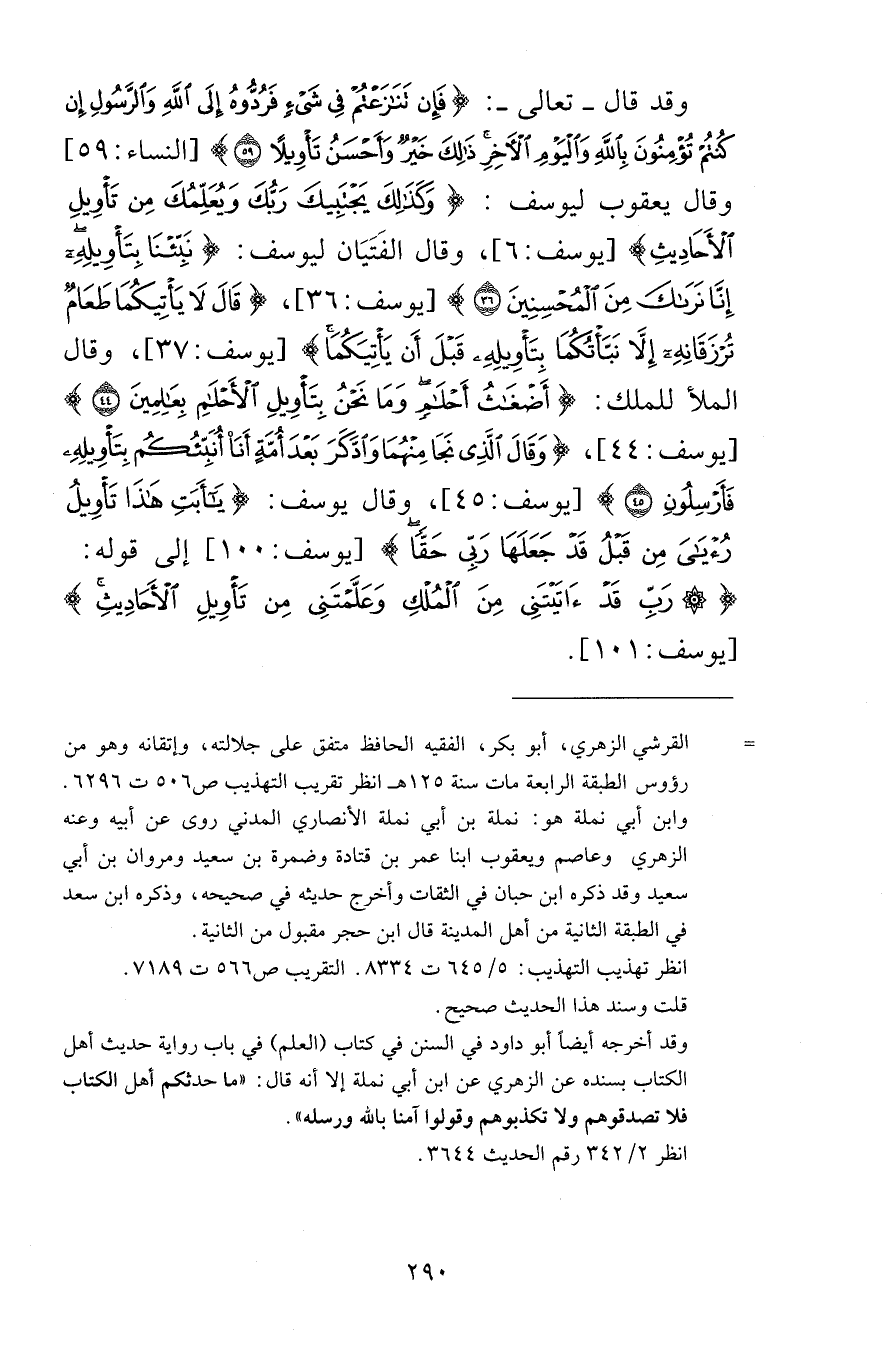 وقد قال ـ تعالى ـ: ﴿ فَإِن تَنَٰزَعۡتُمۡ فِي شَيۡءٖ فَرُدُّوهُ إِلَى ٱللَّهِ وَٱلرَّسُولِ إِن
كُنتُمۡ تُؤۡمِنُونَ بِٱللَّهِ وَٱلۡيَوۡمِ ٱلۡأٓخِرِۚ ذَٰلِكَ خَيۡرٞ وَأَحۡسَنُ تَأۡوِيلًا ٥٩ ﴾ [النساء: ٥٩]
وقال يعقوب ليوسف : ﴿ وَكَذَٰلِكَ يَجۡتَبِيكَ رَبُّكَ وَيُعَلِّمُكَ مِن تَأۡوِيلِ
ٱلۡأَحَادِيثِ﴾ [يوسف: ٦]، وقال الفَتَيَان ليوسف: ﴿ نَبِّئۡنَا بِتَأۡوِيلِهِۦٓۖ
إِنَّا نَرَىٰكَ مِنَ ٱلۡمُحۡسِنِينَ ٣٦ ﴾ [يوسف: ٣٦]، ﴿ قَالَ لَا يَأۡتِيكُمَا طَعَامٞ
تُرۡزَقَانِهِۦٓ إِلَّا نَبَّأۡتُكُمَا بِتَأۡوِيلِهِۦ قَبۡلَ أَن يَأۡتِيَكُمَاۚ﴾ [يوسف: ٣٧]، وقال
الملأ للملك: ﴿ أَضۡغَٰثُ أَحۡلَٰمٖۖ وَمَا نَحۡنُ بِتَأۡوِيلِ ٱلۡأَحۡلَٰمِ بِعَٰلِمِينَ ٤٤ ﴾
[يوسف: ٤٤]، ﴿ وَقَالَ ٱلَّذِي نَجَا مِنۡهُمَا وَٱدَّكَرَ بَعۡدَ أُمَّةٍ أَنَا۠ أُنَبِّئُكُم بِتَأۡوِيلِهِۦ
فَأَرۡسِلُونِ ٤٥ ﴾ [يوسف: ٤٥]، وقال يوسف: ﴿ يَٰٓأَبَتِ هَٰذَا تَأۡوِيلُ
رُءۡيَٰيَ مِن قَبۡلُ قَدۡ جَعَلَهَا رَبِّي حَقّٗاۖ ﴾ [يوسف: ١٠٠] إلى قوله:
﴿ ۞ رَبِّ قَدۡ ءَاتَيۡتَنِي مِنَ ٱلۡمُلۡكِ وَعَلَّمۡتَنِي مِن تَأۡوِيلِ ٱلۡأَحَادِيثِۚ ﴾
[يوسف: ١٠١].
= القرشي الزهري، أبو بكر، الفقيه الحافظ متفق على جلالته، وإتقانه وهو من
رؤوس الطبقة الرابعة مات سنة ١٢٥هـ انظر تقريب التهذيب ص٥٠٦ ت ٦٢٩٦.
وابن أبي نملة هو: نملة بن أبي نملة الأنصاري المدني روى عن أبيه وعنه
الزهري وعاصم ويعقوب ابنا عمر بن قتادة وضمرة بن سعيد ومروان بن أبي
سعيد وقد ذكره ابن حبان في الثقات وأخرج حديثه في صحيحه، وذكره ابن سعد
في الطبقة الثانية من أهل المدينة قال ابن حجر مقبول من الثانية.
انظر تهذيب التهذيب: ٥/ ٦٤٥ ت ٨٣٣٤. التقريب ص٥٦٦ ت ٧١٨٩.
قلت وسند هذا الحديث صحيح.
وقد أخرجه أيضاً أبو داود في السنن في كتاب (العلم) في باب رواية حديث أهل
الكتاب بسنده عن الزهري عن ابن أبي نملة إلا أنه قال: «ما حدثكم أهل الكتاب
فلا تصدقوهم ولا تكذبوهم وقولوا آمنا بالله ورسله».
انظر ٢/ ٣٤٢ رقم الحديث ٣٦٤٤.
٢٩٠